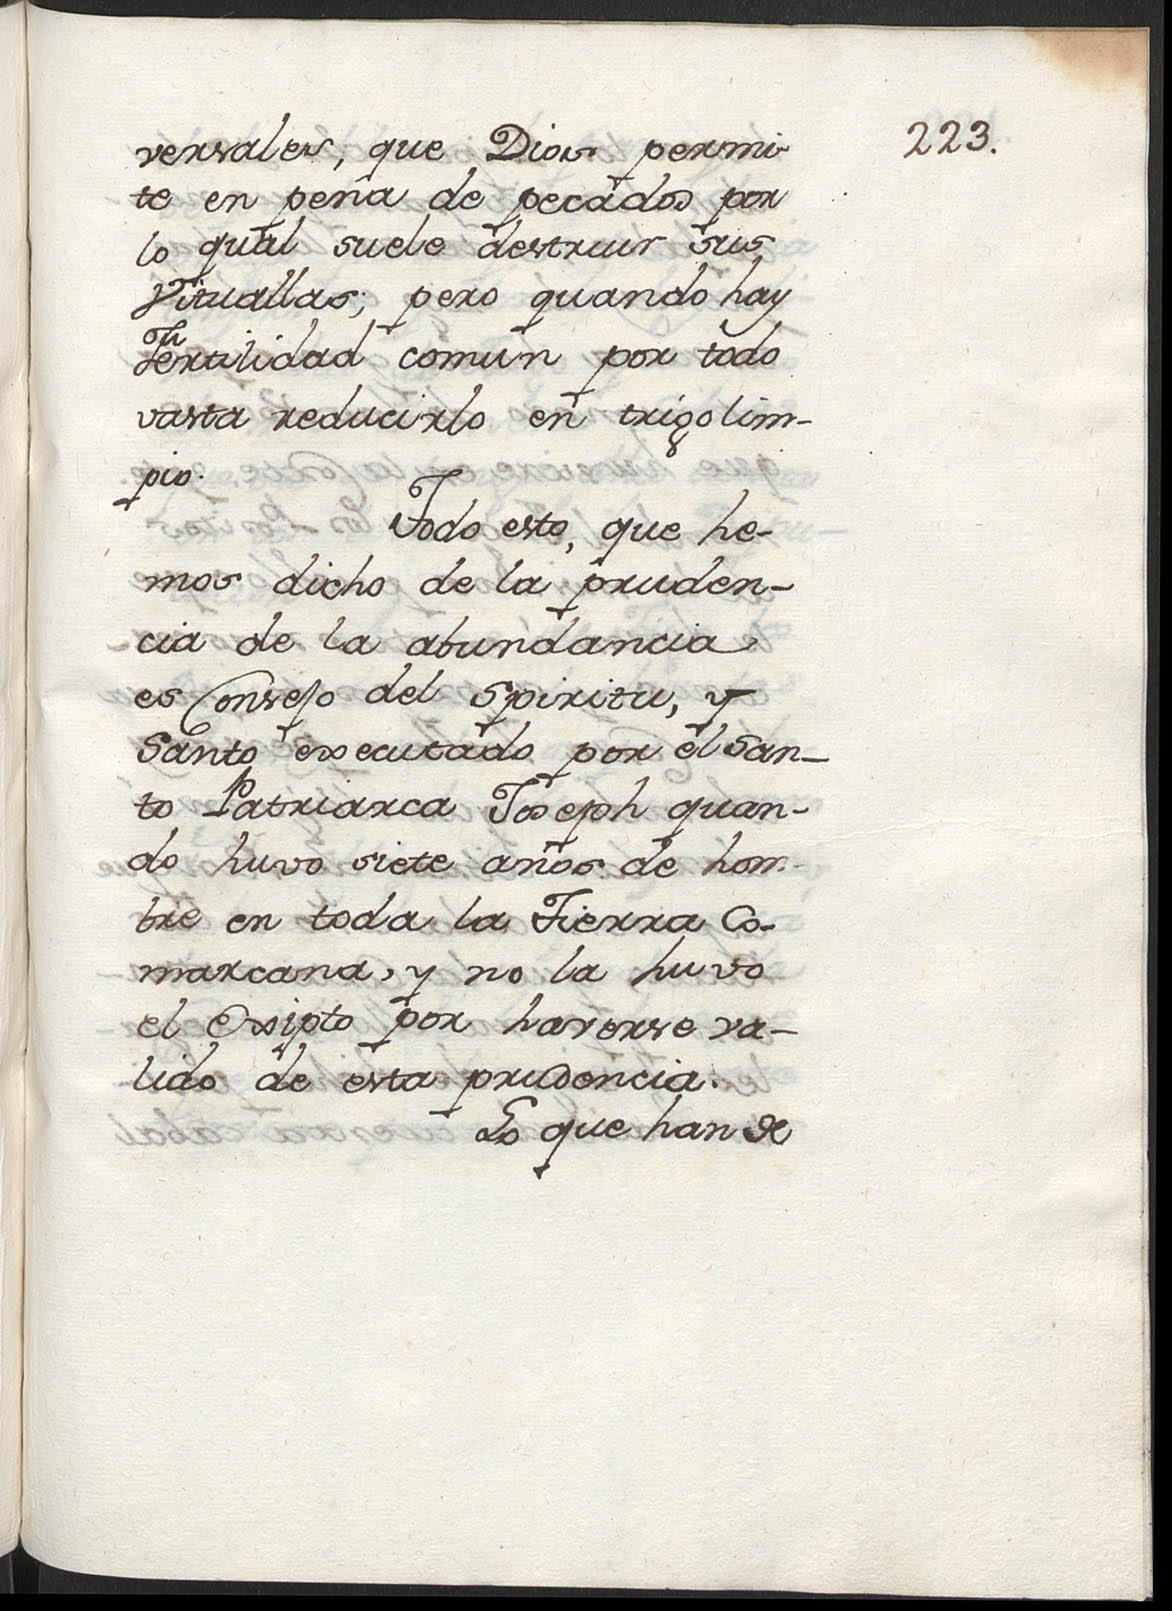 223.
versales, que Dios permi-
te en pena de pecados por
lo qual suele destruir sus
Vituallas; pero quando hay
Fertilidad comun por todo
vasta reducirlo en trigo lim-
pio.
Todo esto, que he-
mos dicho de la pruden-
cia de la abundancia
es Consejo del Spiritu, y
Santo executado por el San-
to Patriarca Joseph quan-
do huvo siete años de hom-
bre en toda la Tierra Co-
marcana, y no la huvo
el Exipto por haverse va-
lido de esta prudencia.
Lo que han de